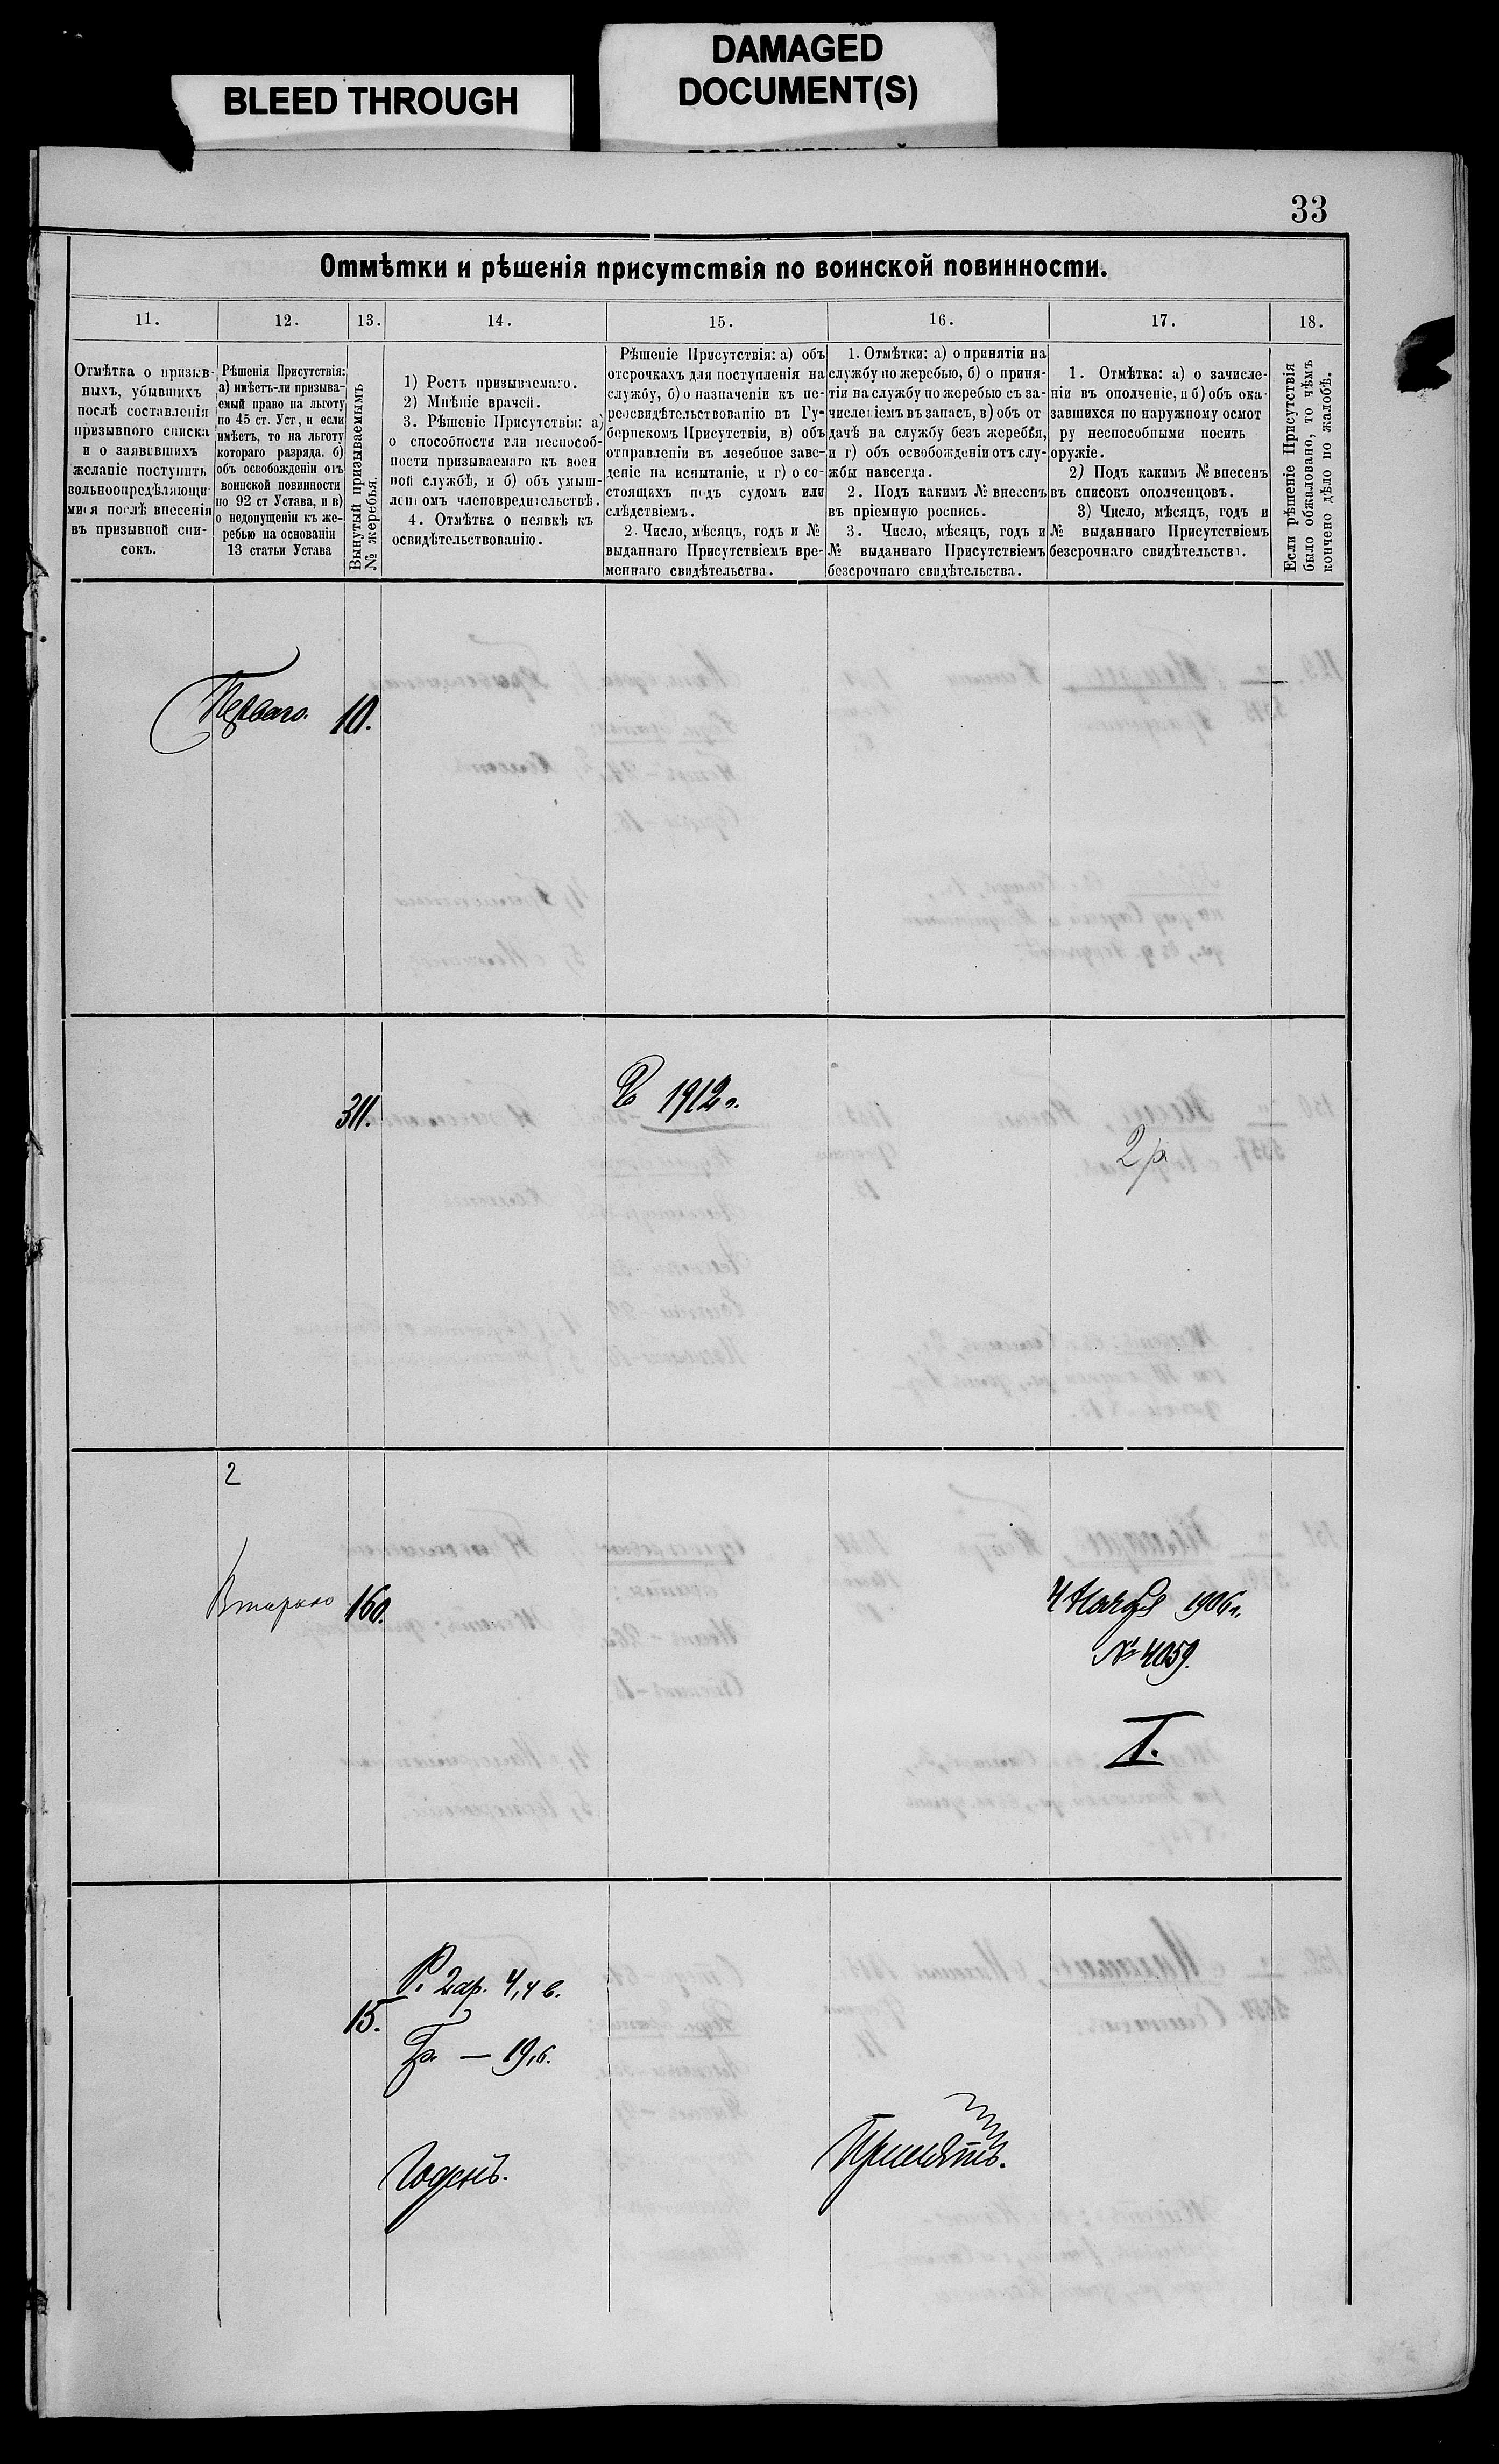 BLEED THROUGH
DAMAGED
DOCUMENT(S)
33
Отмѣтки и рѣшенія присутствія по воинской повинности.
11.
12.
13.
14.
15.
16.
17.
18.
Отмѣтка о призыв-
ныхъ, убывшихъ
послѣ составленія
призывного списка
и о заявившихъ
желаніе поступить
вольноопредѣляющи
мися послѣ внесенія
въ призывной спи-
сокъ.
Рѣшенія Присутствія:
а) имѣетъ-ли призыва-
емый право на льготу
по 45 ст. Уст, и если
имѣетъ, то на льготу
котораго разряда, б)
объ освобожденіи отъ
воинской повинности
по 92 ст Устава, и в)
о недопущеніи къ же-
ребью на основаніи
13 статьи Устава
Вынутый призываемымъ
№ жеребья.
1) Ростъ призываемаго.
2) Мнѣніе врачей.
3. Рѣшеніе Присутствія: а)
о способности или неспособ-
ности призываемаго къ воен
ной службѣ, и б) объ умыш-
ленномъ членовредительствѣ.
4. Отмѣтка о неявкѣ къ
освидѣтельствованію.
Рѣшеніе Присутствія: а) объ
отсрочкахъ для поступленія на
службу, б) о назначеніи къ пе-
реосвидѣтельствованію въ Гу-
бернскомъ Присутствіи, в) объ
отправленіи въ лечебное заве-
деніе на испытаніе, и г) о со-
стоящихъ подъ судомъ или
слѣдствіемъ.
2. Число, мѣсяцъ, годъ и №
выданнаго Присутствіемъ вре-
меннаго свидѣтельства.
1. Отмѣтки: а) о принятіи на
службу по жеребью, б) о приня-
тіи на службу по жеребью съ за-
численіемъ въ запасъ, в) объ от
дачѣ на службу безъ жеребья,
и г) объ освобожденіи отъ слу-
жбы навсегда.
2. Подъ какимъ № внесенъ
въ пріемную роспись.
3. Число, мѣсяцъ, годъ и
№ выданнаго Присутствіемъ
безсрочнаго свидѣтельства.
1. Отмѣтка: а) о зачисле-
ніи въ ополченіе, и б) объ ока-
завшихся по наружному осмот
ру неспособными носить
оружіе.
2) Подъ какимъ № внесенъ
въ списокъ ополченцовъ.
3) Число, мѣсяцъ, годъ и
№ выданнаго Присутствіемъ
безсрочнаго свидѣтельства.
Если рѣшеніе Присутствія
было обжаловано, то чѣмъ
кончено дѣло по жалобѣ.
Перваго. 10.
311.
1912 г.
2 р
2
Второго 160.
4 Ноября 1906 г.
№ 4059.
I.
Р. 2 ар. 4,4 в.
15.
Гр. — 19,6.
Годенъ.
Принятъ.